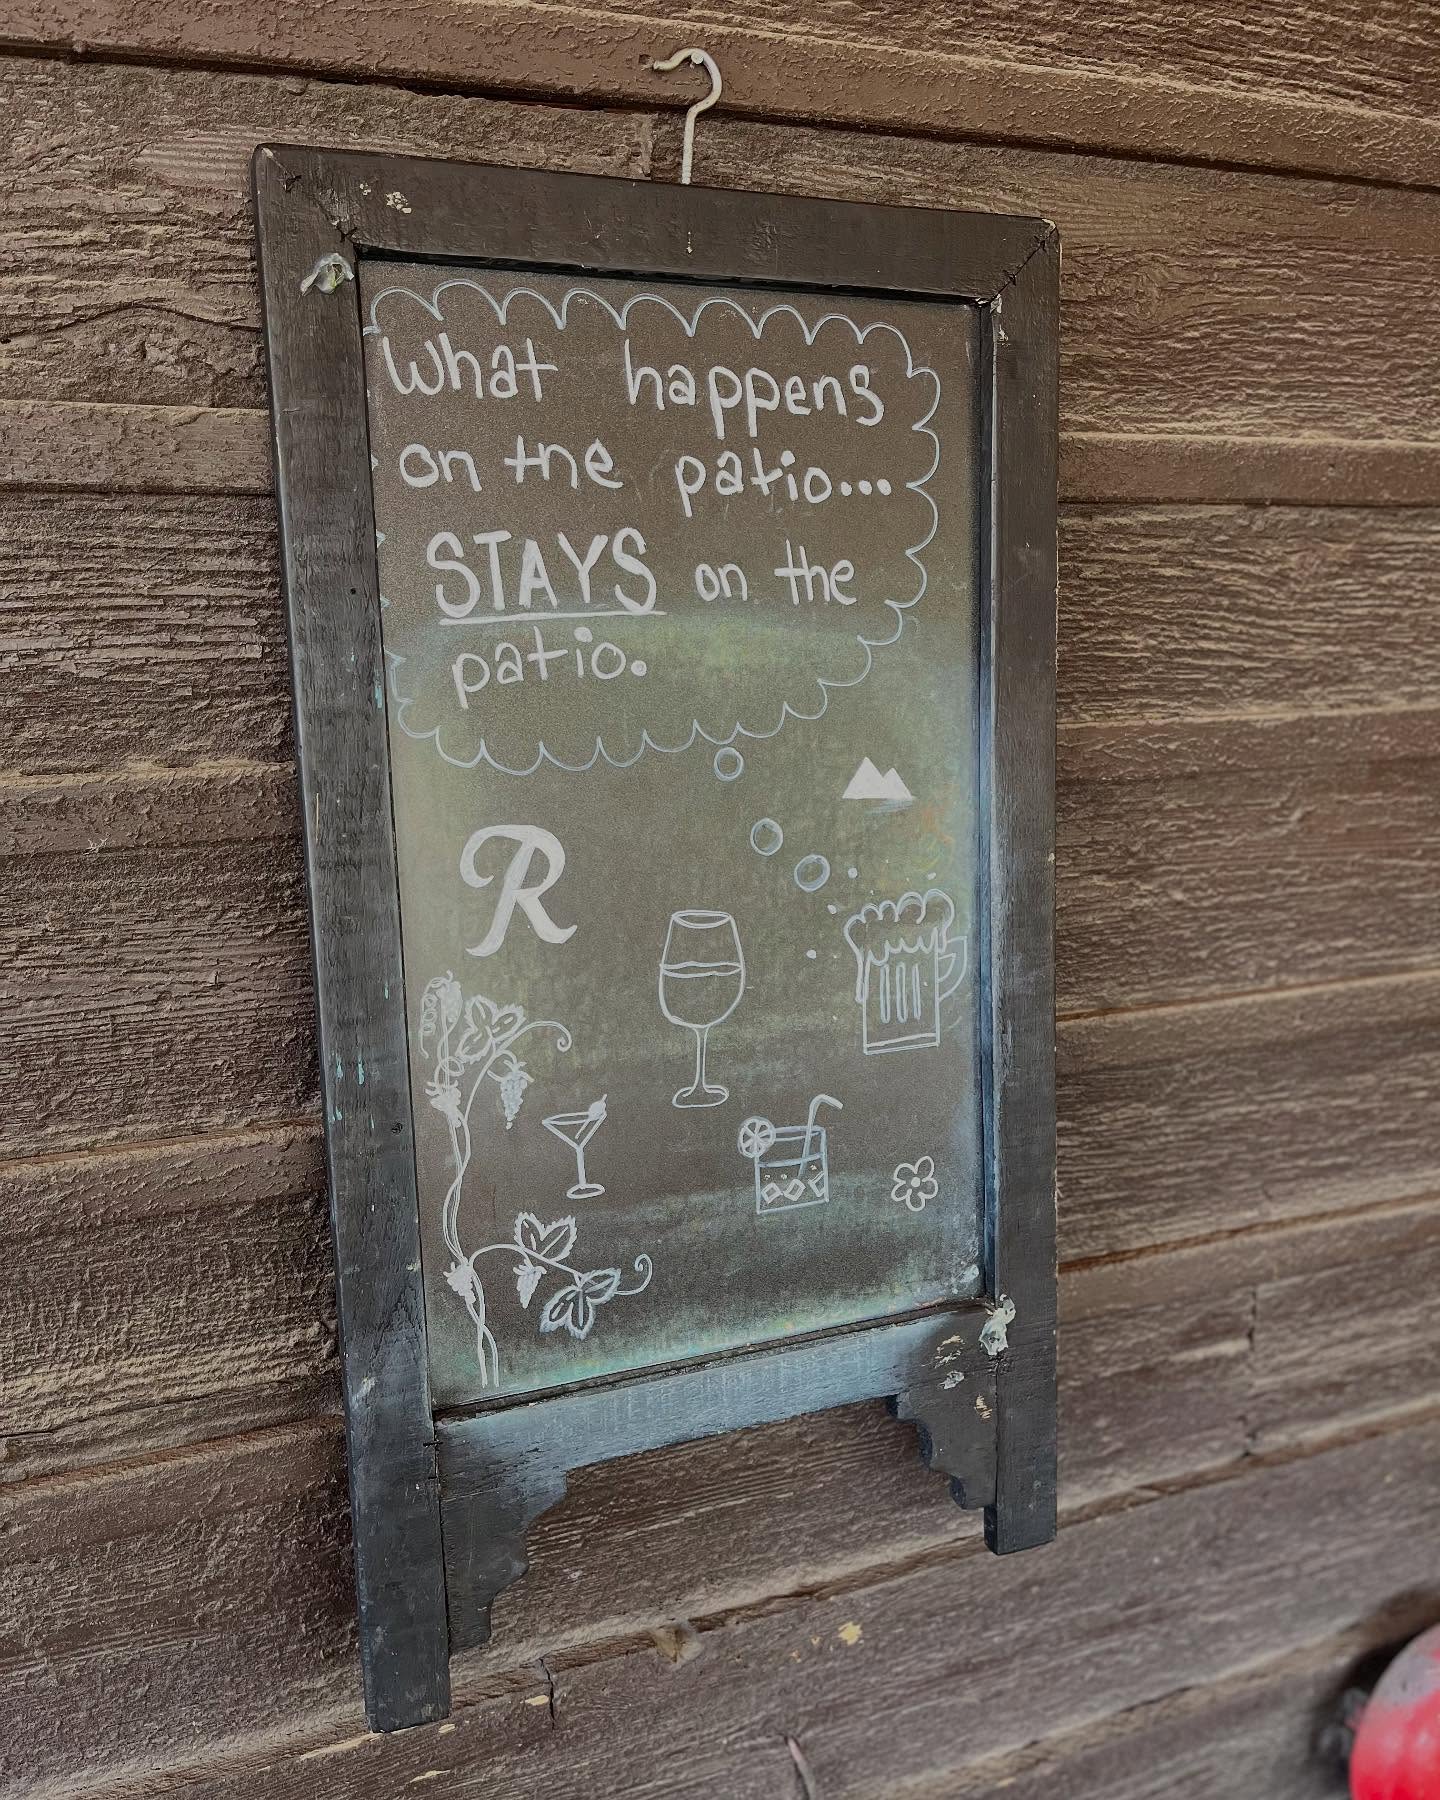 What happens
on the patio...
STAYS on the
patio.
R